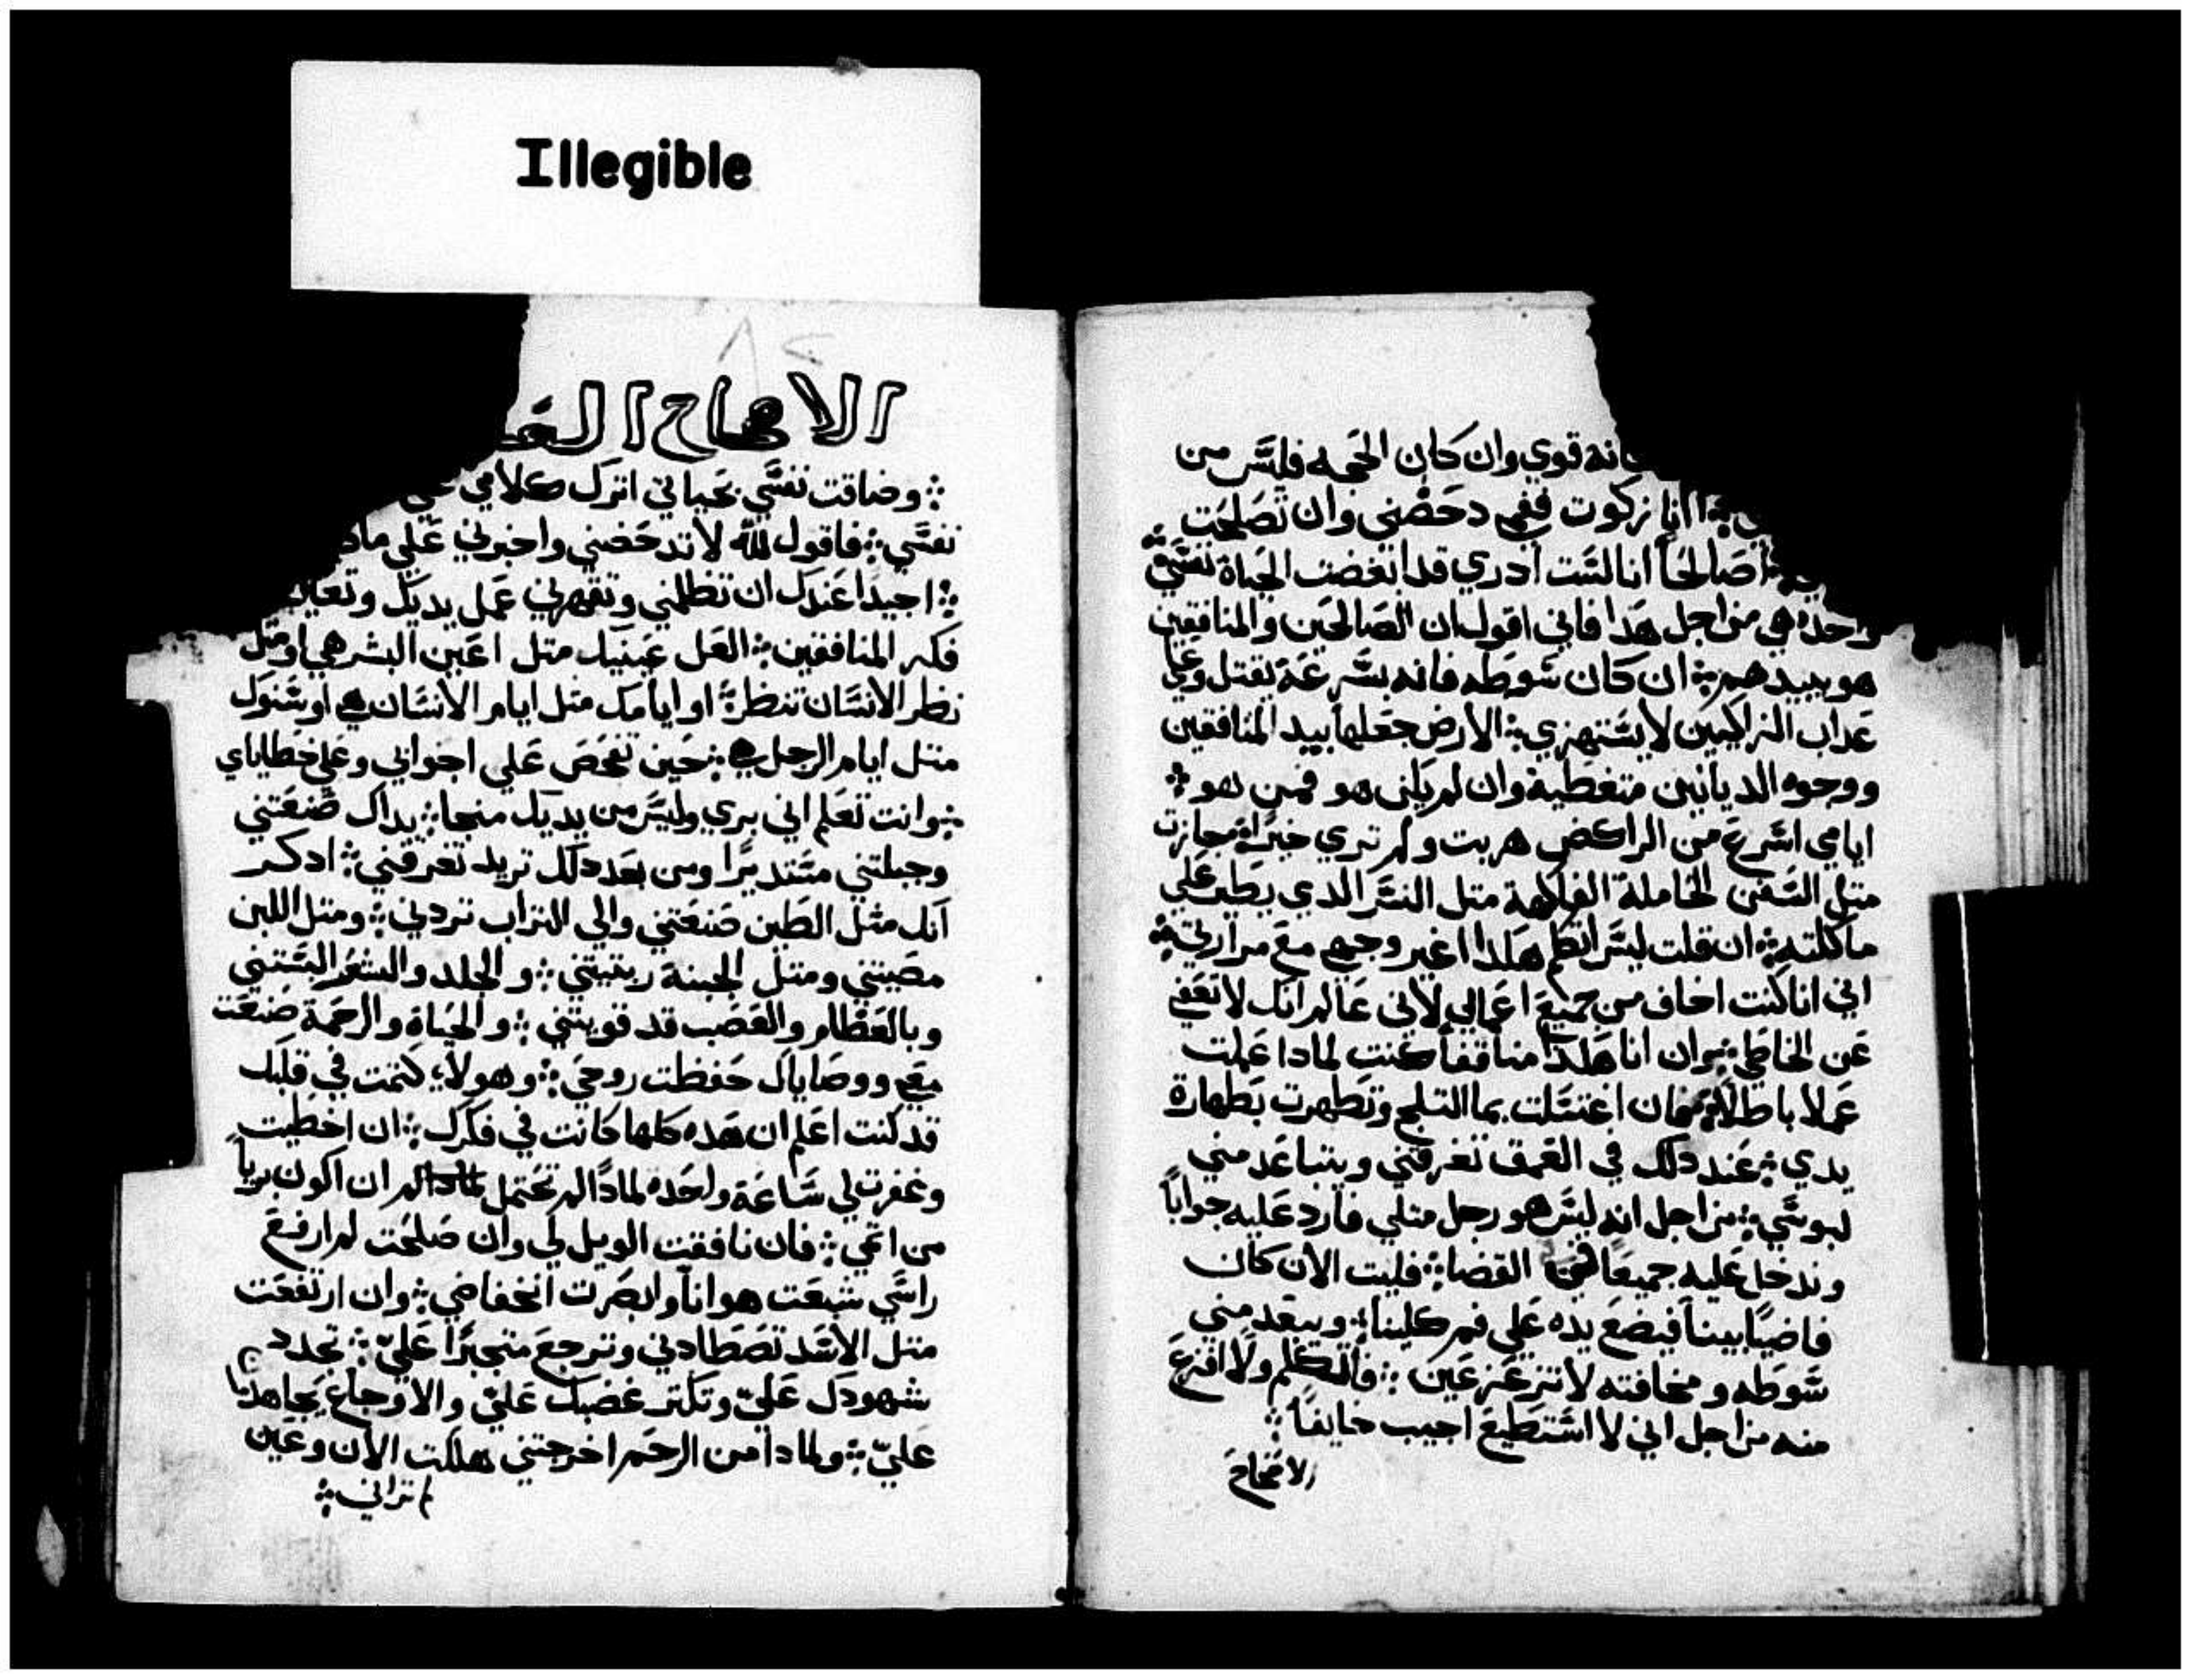 Illegible
قوي وان كان الحكمه فليس من
انا زكوت ففمي دحضني وان تصلحت
صالحاً انا لست ادري قد ابغضت الحياة نفسي
واحده هي من اجل هدا فاني اقول ان الصالحين والمنافقين
هو يبيدهم ܀ ان كان سوطه فانه بسرعة يقتل وعلي
عداب الزاكيين لا يستهزي ܀ الارض جعلها بيد المنافقين
ووجوه الديانين متغطية وان لم يكن هو فمن هو ܀
ايامي اسرع من الراكض هربت ولم تري خيراً جازت
متل السفن الحاملة الفاكهة متل النسر الدي يطير علي
ماكلته ܀ ان قلت ليس اتكلم هكدا اغير وجهي مع مرارتي ܀
اني انا كنت اخاف من جميع اعمالي لاني عالم انك لا تعفي
عن الخاطي ܀ وان انا هكدا منافقاً كنت لمادا عملت
عملا باطلا ܀ فان اغتسلت بما التلج وتطهرت بطهارة
يدي ܀ عند دلك في العمق تغرقني ويتباعد مني
لبوسي ܀ من اجل انه ليس هو رجل متلي فارد عليه جواباً
وندخل عليه جميعاً القضا ܀ فليت الان كان
قاضياً بيننا فيضع يده علي فم كلينا ܀ ويبعد مني
سوطه ومخافته لا تزعزعني ܀ فاتكلم ولا افزع
منه من اجل اني لا استطيع اجيب خايفاً ܀
الاصحاح
٨٢
الاصحاح
܀ وضاقت نفسي بحياتي اترك كلامي علي
نفسي ܀ فاقول لله لا تدحضني واخبرني علي مادا
܀ اجيداً عندك ان تظلمني وتقهرني عمل يديك وتعين
فكر المنافقين ܀ العل عينيك متل اعين البشر هي او متل
نظر الانسان تنظر ܀ او ايامك متل ايام الانسان هي او سنوك
متل ايام الرجل هي ܀ حين تفحص علي اجوابي وعلي خطاياي
܀ وانت تعلم اني بري وليس من يديك منجا ܀ يداك صنعتني
وجبلتني مستديراً ومن بعد دلك تريد تغرقني ܀ ادكر
انك مثل الطين صنعتني والي التراب تردني ܀ ومتل اللبن
مصيتني ومتل الجبنة ربتيتني ܀ والجلد والشعر البستني
وبالعظام والعصب قد قويتني ܀ والحياة والرحمة صنعت
معي ووصاياك حفظت روحي ܀ وهولاء كتمت في قلبك
قد كنت اعلم ان هده كلها كانت في فكرك ܀ ان اخطيت
وغفرت لي ساعة واحده لمادا لم تحتمل لمادا لم ان اكون برياً
من اتمي ܀ فان نافقت الويل لي وان صلحت لم ارفع
راسي شبعت هواناً وابصرت انخفاضي ܀ وان ارتفعت
متل الاسد تصطادني وترجع متجبراً علي ܀ تجدد
شهودك علي وتكتر غضبك علي والاوجاع يجاهدن
علي ܀ ولمادا من الرحم اخرجتني هلكت الان وعين
تراني ܀